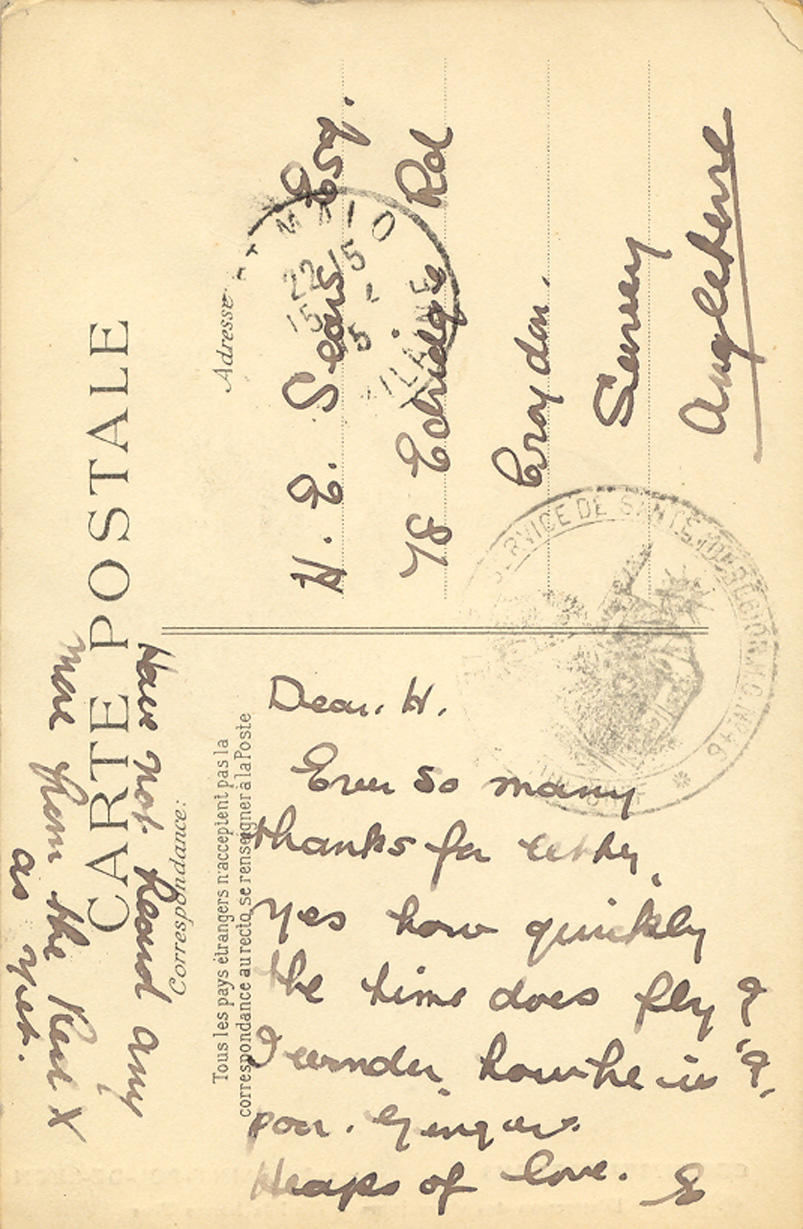 CARTE POSTALE
Correspondance:
Tous les pays étrangers n'acceptent pas la
correspondance au recto, se renseigner à la Poste
Adresse
H. E. Sears Esq.
78 Edridge Rd
Croydon.
Surrey
Angleterre
MALO
22 15
15-5
VILAINE
SERVICE DE SANTÉ
Dear. H.
Ever so many
thanks for letter,
yes how quickly
the time does fly
I wonder how he is
poor. Ginger.
Heaps of love. E
Have not heard any
more from the X
as yet.